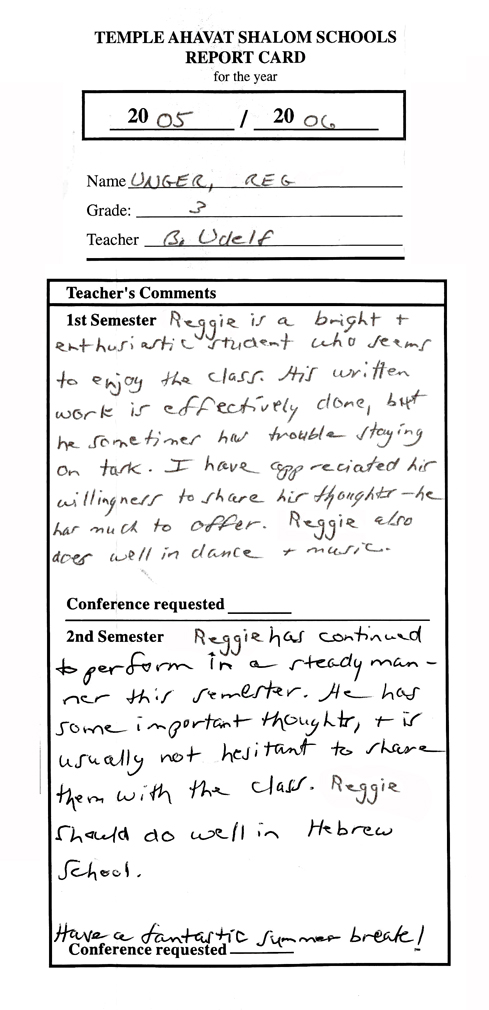 TEMPLE AHAVAT SHALOM SCHOOLS
REPORT CARD
for the year
20 05 / 20 06
Name UNGER, REG
Grade: 3
Teacher B. Udelf
Teacher's Comments
1st Semester Reggie is a bright +
enthusiastic student who seems
to enjoy the class. His written
work is effectively done, but
he sometimes has trouble staying
on task. I have appreciated his
willingness to share his thoughts - he
has much to offer. Reggie also
does well in dance + music.
Conference requested
2nd Semester Reggie has continued
to perform in a steady man-
ner this semester. He has
some important thoughts, + is
usually not hesitant to share
them with the class. Reggie
should do well in Hebrew
School.
Have a fantastic summer break!
Conference requested